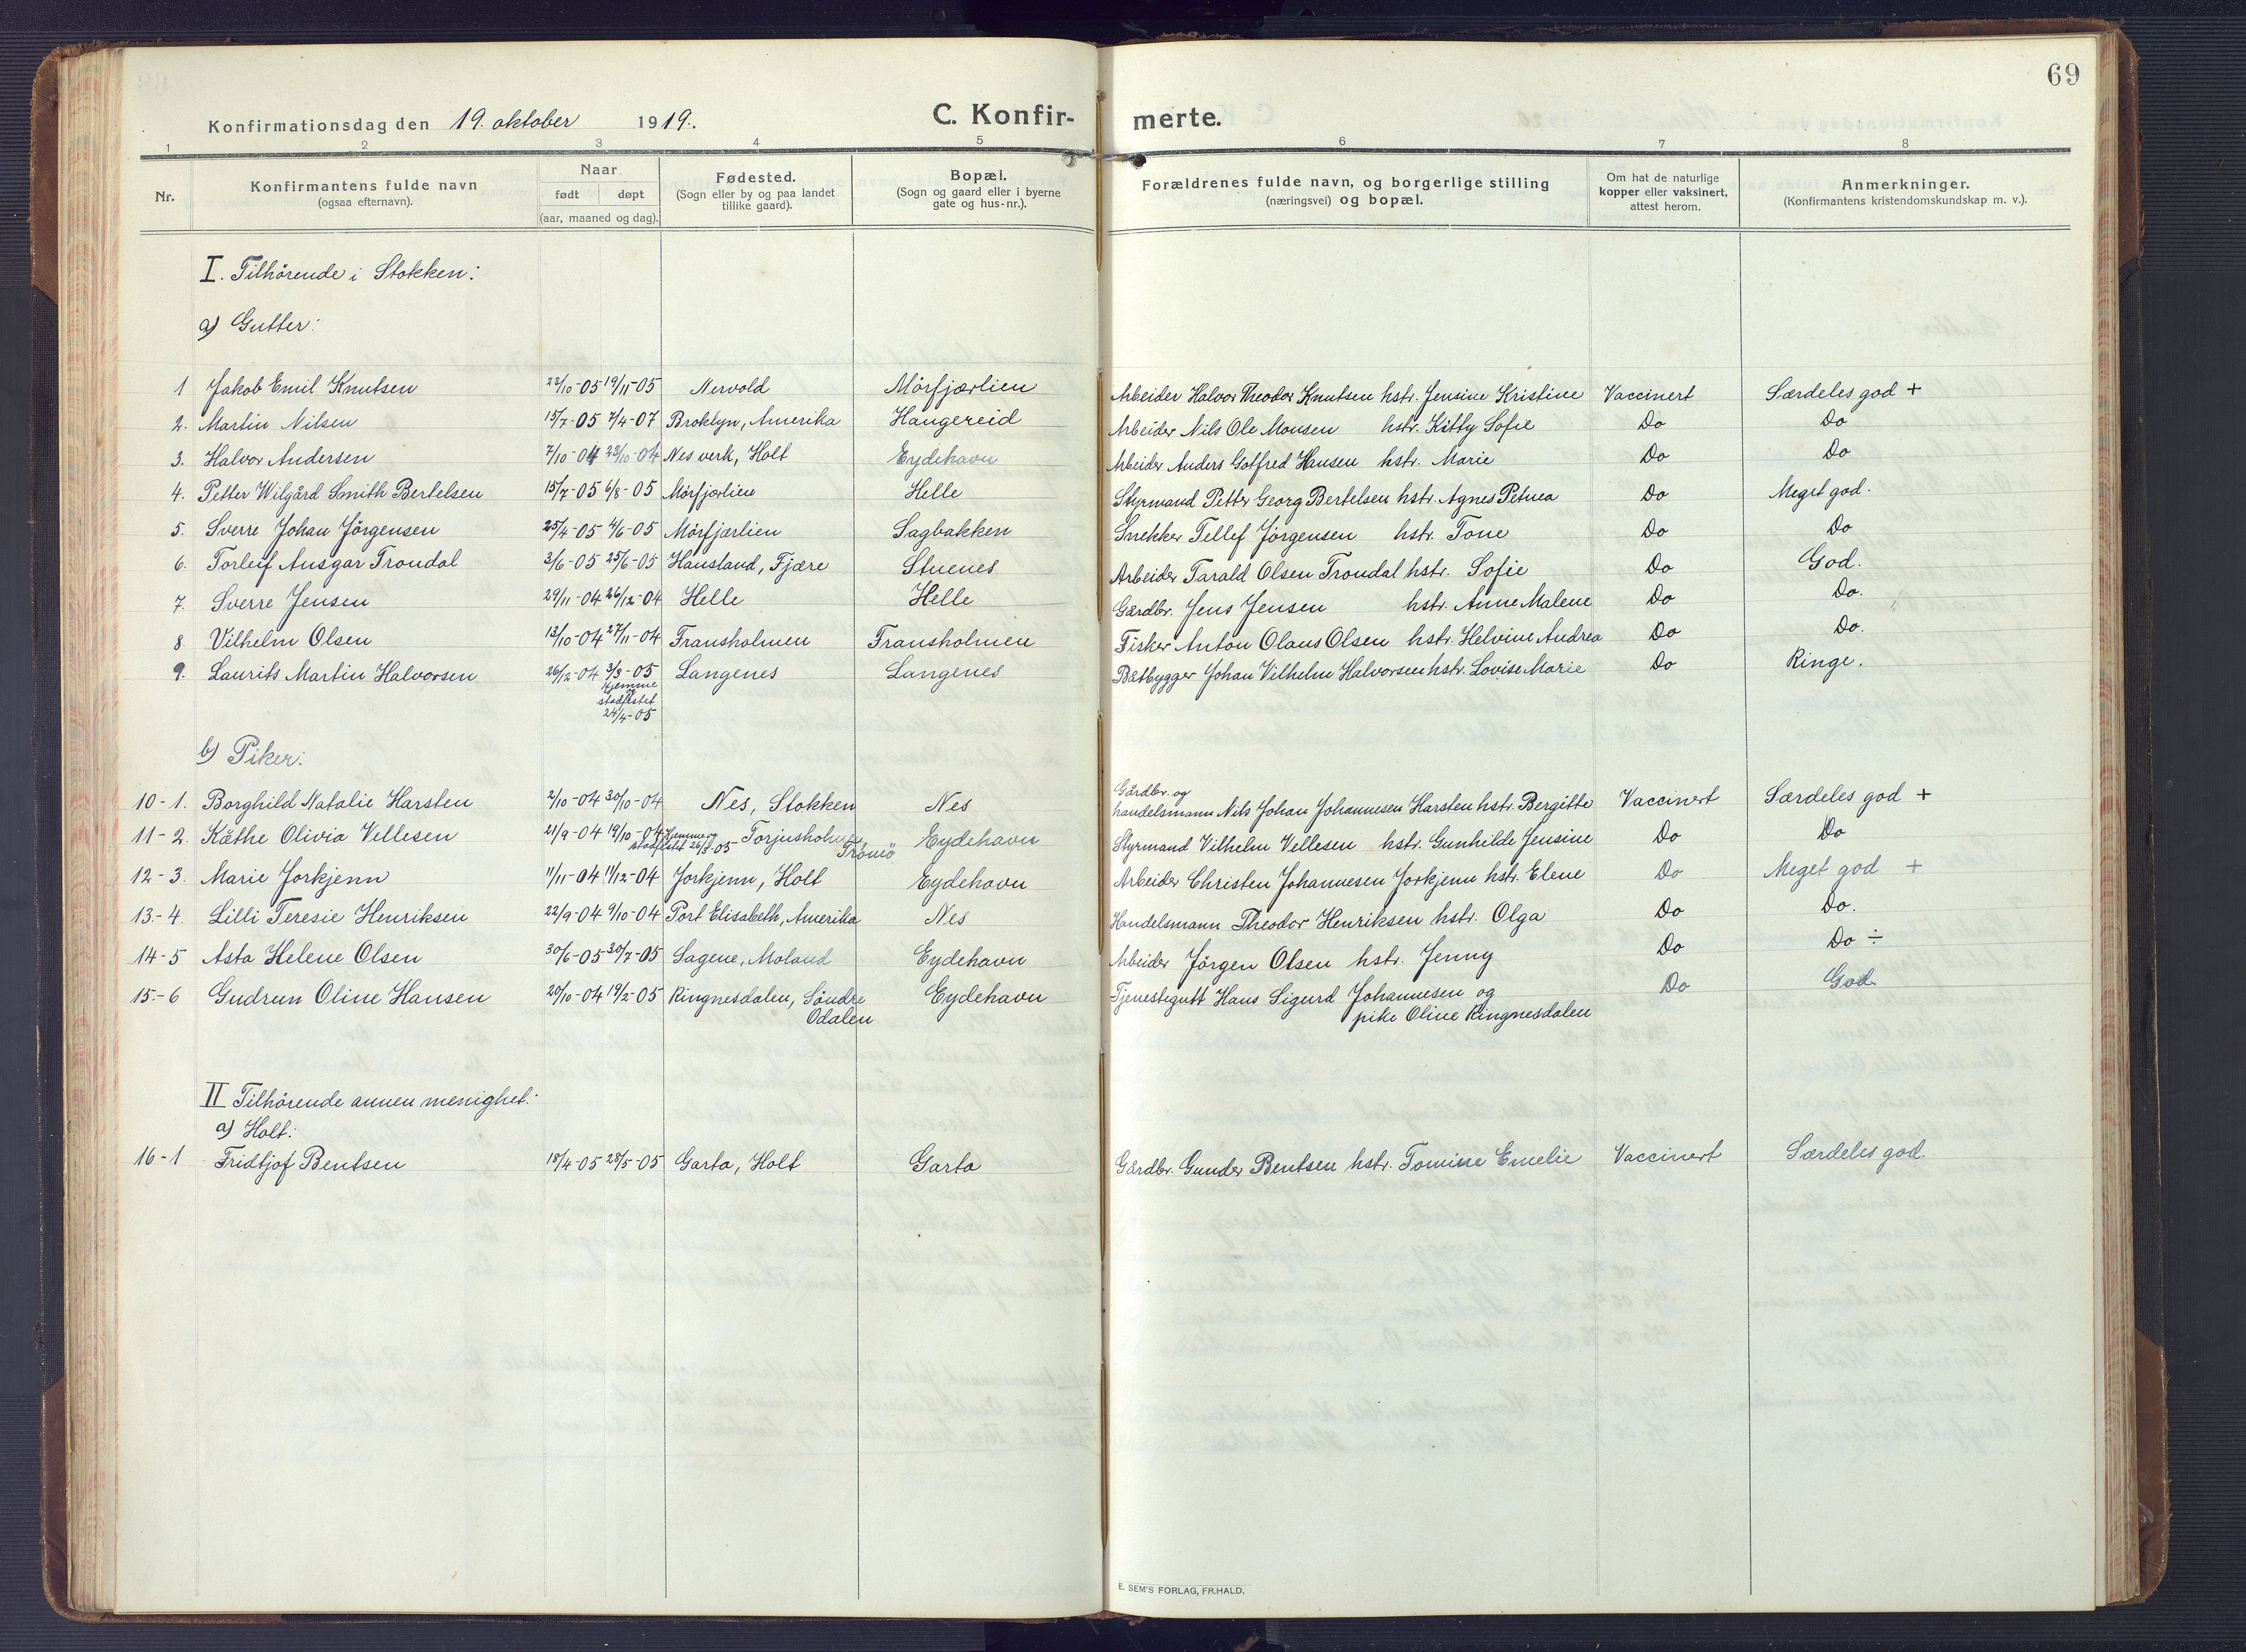 69
Konfirmationsdag den 19. oktober 1919.
C. Konfirmerte.
1 2 3 4 5 6 7 8
Nr. Konfirmantens fulde navn (ogsaa efternavn). Naar født døpt (aar, maaned og dag). Fødested. (Sogn eller by og paa landet tillike gaard). Bopæl. (Sogn og gaard eller i byerne gate og hus-nr.). Forældrenes fulde navn, og borgerlige stilling (næringsvei) og bopæl. Om hat de naturlige kopper eller vaksinert, attest herom. Anmerkninger. (Konfirmantens kristendomskundskap m. v.).
I. Tilhörende i Stokken:
a) Gutter:
1 Jakob Emil Knutsen 23/10-05 19/11-05 Nervold Mörfjærlien Arbeider Halvor Theodor Knutsen hstr. Jensine Kristine Vaccinert Særdeles god +
2. Martin Nilsen 15/7-05 7/4-07 Broklyn, Amerika Haugereid Arbeider Nils Ole Monsen hstr. Kitty Sofie Do Do
3. Halvor Andersen 7/10-04 23/10-04 Nes verk, Holt Eydehavn Arbeider Anders Gotfred Hansen hstr. Marie Do Do
4. Petter Wilgård Smith Bertelsen 15/7-05 6/8-05 Mörfjærlien Helle Styrmand Petter Georg Bertelsen hstr. Agnes Petnea Do Meget god.
5. Sverre Johan Jörgensen 25/4-05 4/6-05 Mörfjærlien Sagbakken Snekker Tellef Jörgensen hstr. Tone Do Do
6. Torleif Ansgar Trondal 3/6-05 25/6-05 Hausland, Fjære Stuenes Arbeider Tarald Olsen Trondal hstr. Sofie Do God.
7. Sverre Jensen 29/11-04 26/12-04 Helle Helle Gårdbr. Jens Jensen hstr. Anne Malene Do Do.
8 Vilhelm Olsen 13/10-04 27/11-04 Fransholmen Fransholmen Fisker Anton Olaus Olsen hstr. Helvine Andrea Do Do.
9. Laurits Martin Halvorsen 26/12-04 3/3-05 Langenes Langenes Båtbygger Johan Vilhelm Halvorsen hstr. Lovise Marie Do Ringe.
hjemme
stadfestet
24/4-05
b) Piker:
10-1. Borghild Natalie Harsten 2/10-04 30/10-04 Nes, Stokken Nes Gårdbr. og
handelsmann Nils Johan Johannesen Harsten hstr. Bergitte Vaccinert Særdeles god +
11-2. Käthe Olivia Vellesen 21/9-04 19/10-04 hjemme og Torjusholmen Eydehavn Styrmand Vilhelm Vellesen hstr. Gunhilde Jensine Do Do
stadfestet 26/3-05 Tromö
12-3. Marie Jorkjenn 11/11-04 11/12-04 Jorkjenn, Holt Eydehavn Arbeider Christen Johannesen Jorkjenn hstr. Elene Do Meget god +
13-4. Lilli Teresie Henriksen 22/9-04 9/10-04 Port Elisabeth, Amerika Nes Handelsmann Theodor Henriksen hstr. Olga Do Do.
14-5 Asta Helene Olsen 30/6-05 30/7-05 Sagene, Moland Eydehavn Arbeider Jörgen Olsen hstr. Jenny Do Do ÷
15-6 Gudrun Oline Hansen 20/10-04 19/2-05 Ringnesdalen, Söndre Eydehavn Tjenestegutt Hans Sigurd Johannesen og Do God
Odalen pike Oline Ringnesdalen
II Tilhörende annen menighet:
a) Holt:
16-1 Fridtjof Bentsen 18/4-05 28/5-05 Garta, Holt Garta Gårdbr. Gunder Bentsen hstr. Tomine Emelie Vaccinert Særdeles god.
E. SEM'S FORLAG, FR.HALD.